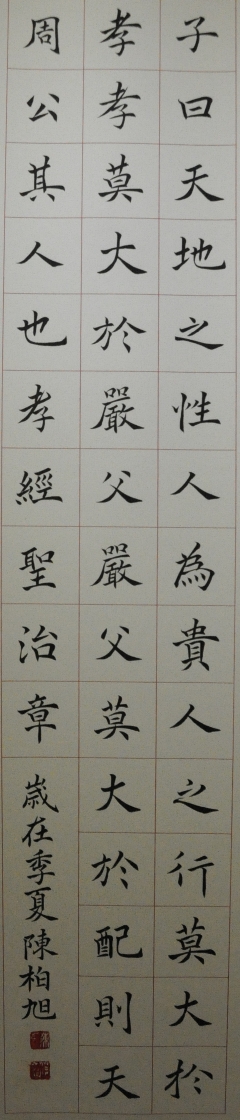 子曰天地之性人為貴人之行莫大於
孝孝莫大於嚴父嚴父莫大於配則天
周公其人也孝經聖治章
歲在季夏陳柏旭